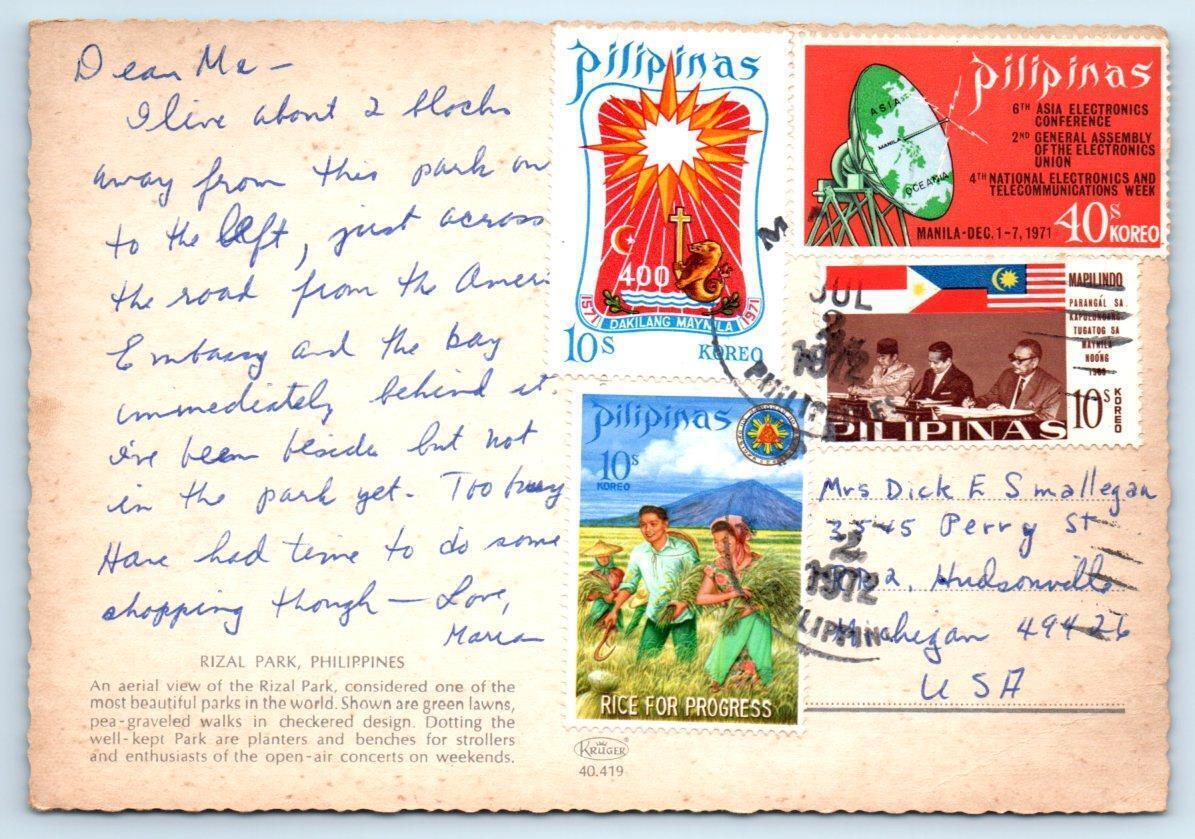 Dear Ma -
I live about 2 blocks
away from this park on
to the left, just across
the road from the Ameri
Embassy and the bay
immediately behind it.
i've been beside but not
in the park yet. Too busy
Have had time to do some
shopping though - Love,
Maria
RIZAL PARK, PHILIPPINES
An aerial view of the Rizal Park, considered one of the
most beautiful parks in the world. Shown are green lawns,
pea-graveled walks in checkered design. Dotting the
well-kept Park are planters and benches for strollers
and enthusiasts of the open-air concerts on weekends.
pilipinas
400
1571 DAKILANG MAYNILA 1971
10s KOREO
pilipinas
ASIA
MANILA
OCEANIA
6TH ASIA ELECTRONICS
CONFERENCE
2ND GENERAL ASSEMBLY
OF THE ELECTRONICS
UNION
4TH NATIONAL ELECTRONICS AND
TELECOMMUNICATIONS WEEK
MANILA-DEC. 1-7, 1971 40s KOREO
MAPILINDO
PARANGAL SA
KAPULUNGANG
TUGATOG SA
MAYNILA
NOONG
1963
10s KOREO
PILIPINAS
JUL
1972
PHILIPPINES
pilipinas
10s
KOREO
RICE FOR PROGRESS
KRUGER
40.419
Mrs Dick E Smallegan
3545 Perry St
2, Hudsonville
Michegan 49426
USA
2
1972
LIPPIN